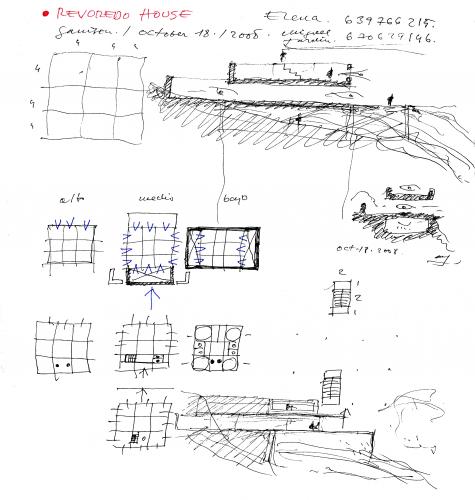 REVOREDO HOUSE
Elena. 639766215.
/ october 18. / 2008. miguel
4 4 4
4
4
4
alto medio bajo
oct. 18. 2008
2
2
1
1